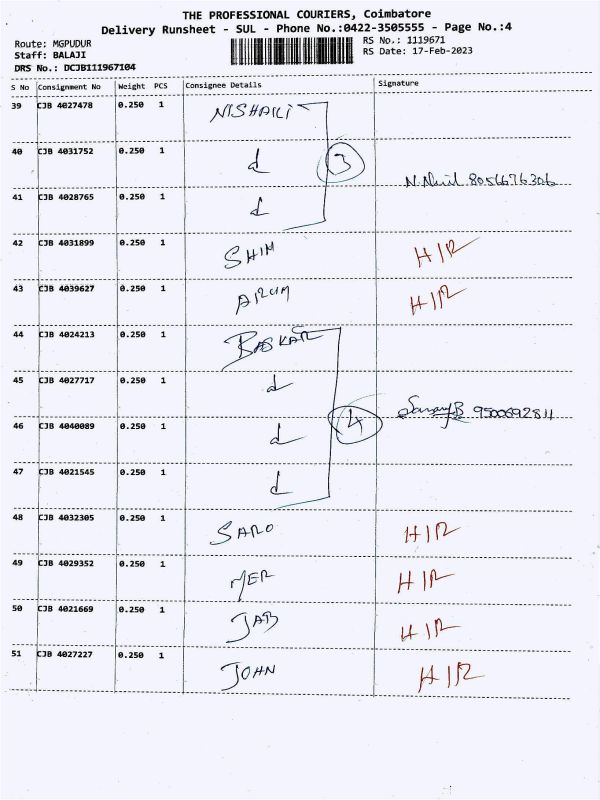 THE PROFESSIONAL COURIERS, Coimbatore
Delivery Runsheet - SUL - Phone No.:0422-3505555 - Page No.:4
Route: MGPUDUR
RS No.: 1119671
Staff: BALAJI
RS Date: 17-Feb-2023
DRS No.: DCJB111967104
S No Consignment No Weight PCS Consignee Details Signature
39 CJB 4027478 0.250 1
40 CJB 4031752 0.250 1 d 3
8056676306
41 CJB 4028765 0.250 1 d
42 CJB 4031899 0.250 1 SHIM H/R
43 CJB 4039627 0.250 1 ARUM H/R
44 CJB 4024213 0.250 1 BASKAR
45 CJB 4027717 0.250 1 d
46 CJB 4040089 0.250 1 d 4 9500692811
47 CJB 4021545 0.250 1 d
48 CJB 4032305 0.250 1 SARO H/R
49 CJB 4029352 0.250 1 MER H/R
50 CJB 4021669 0.250 1 JAB H/R
51 CJB 4027227 0.250 1 JOHN H/R